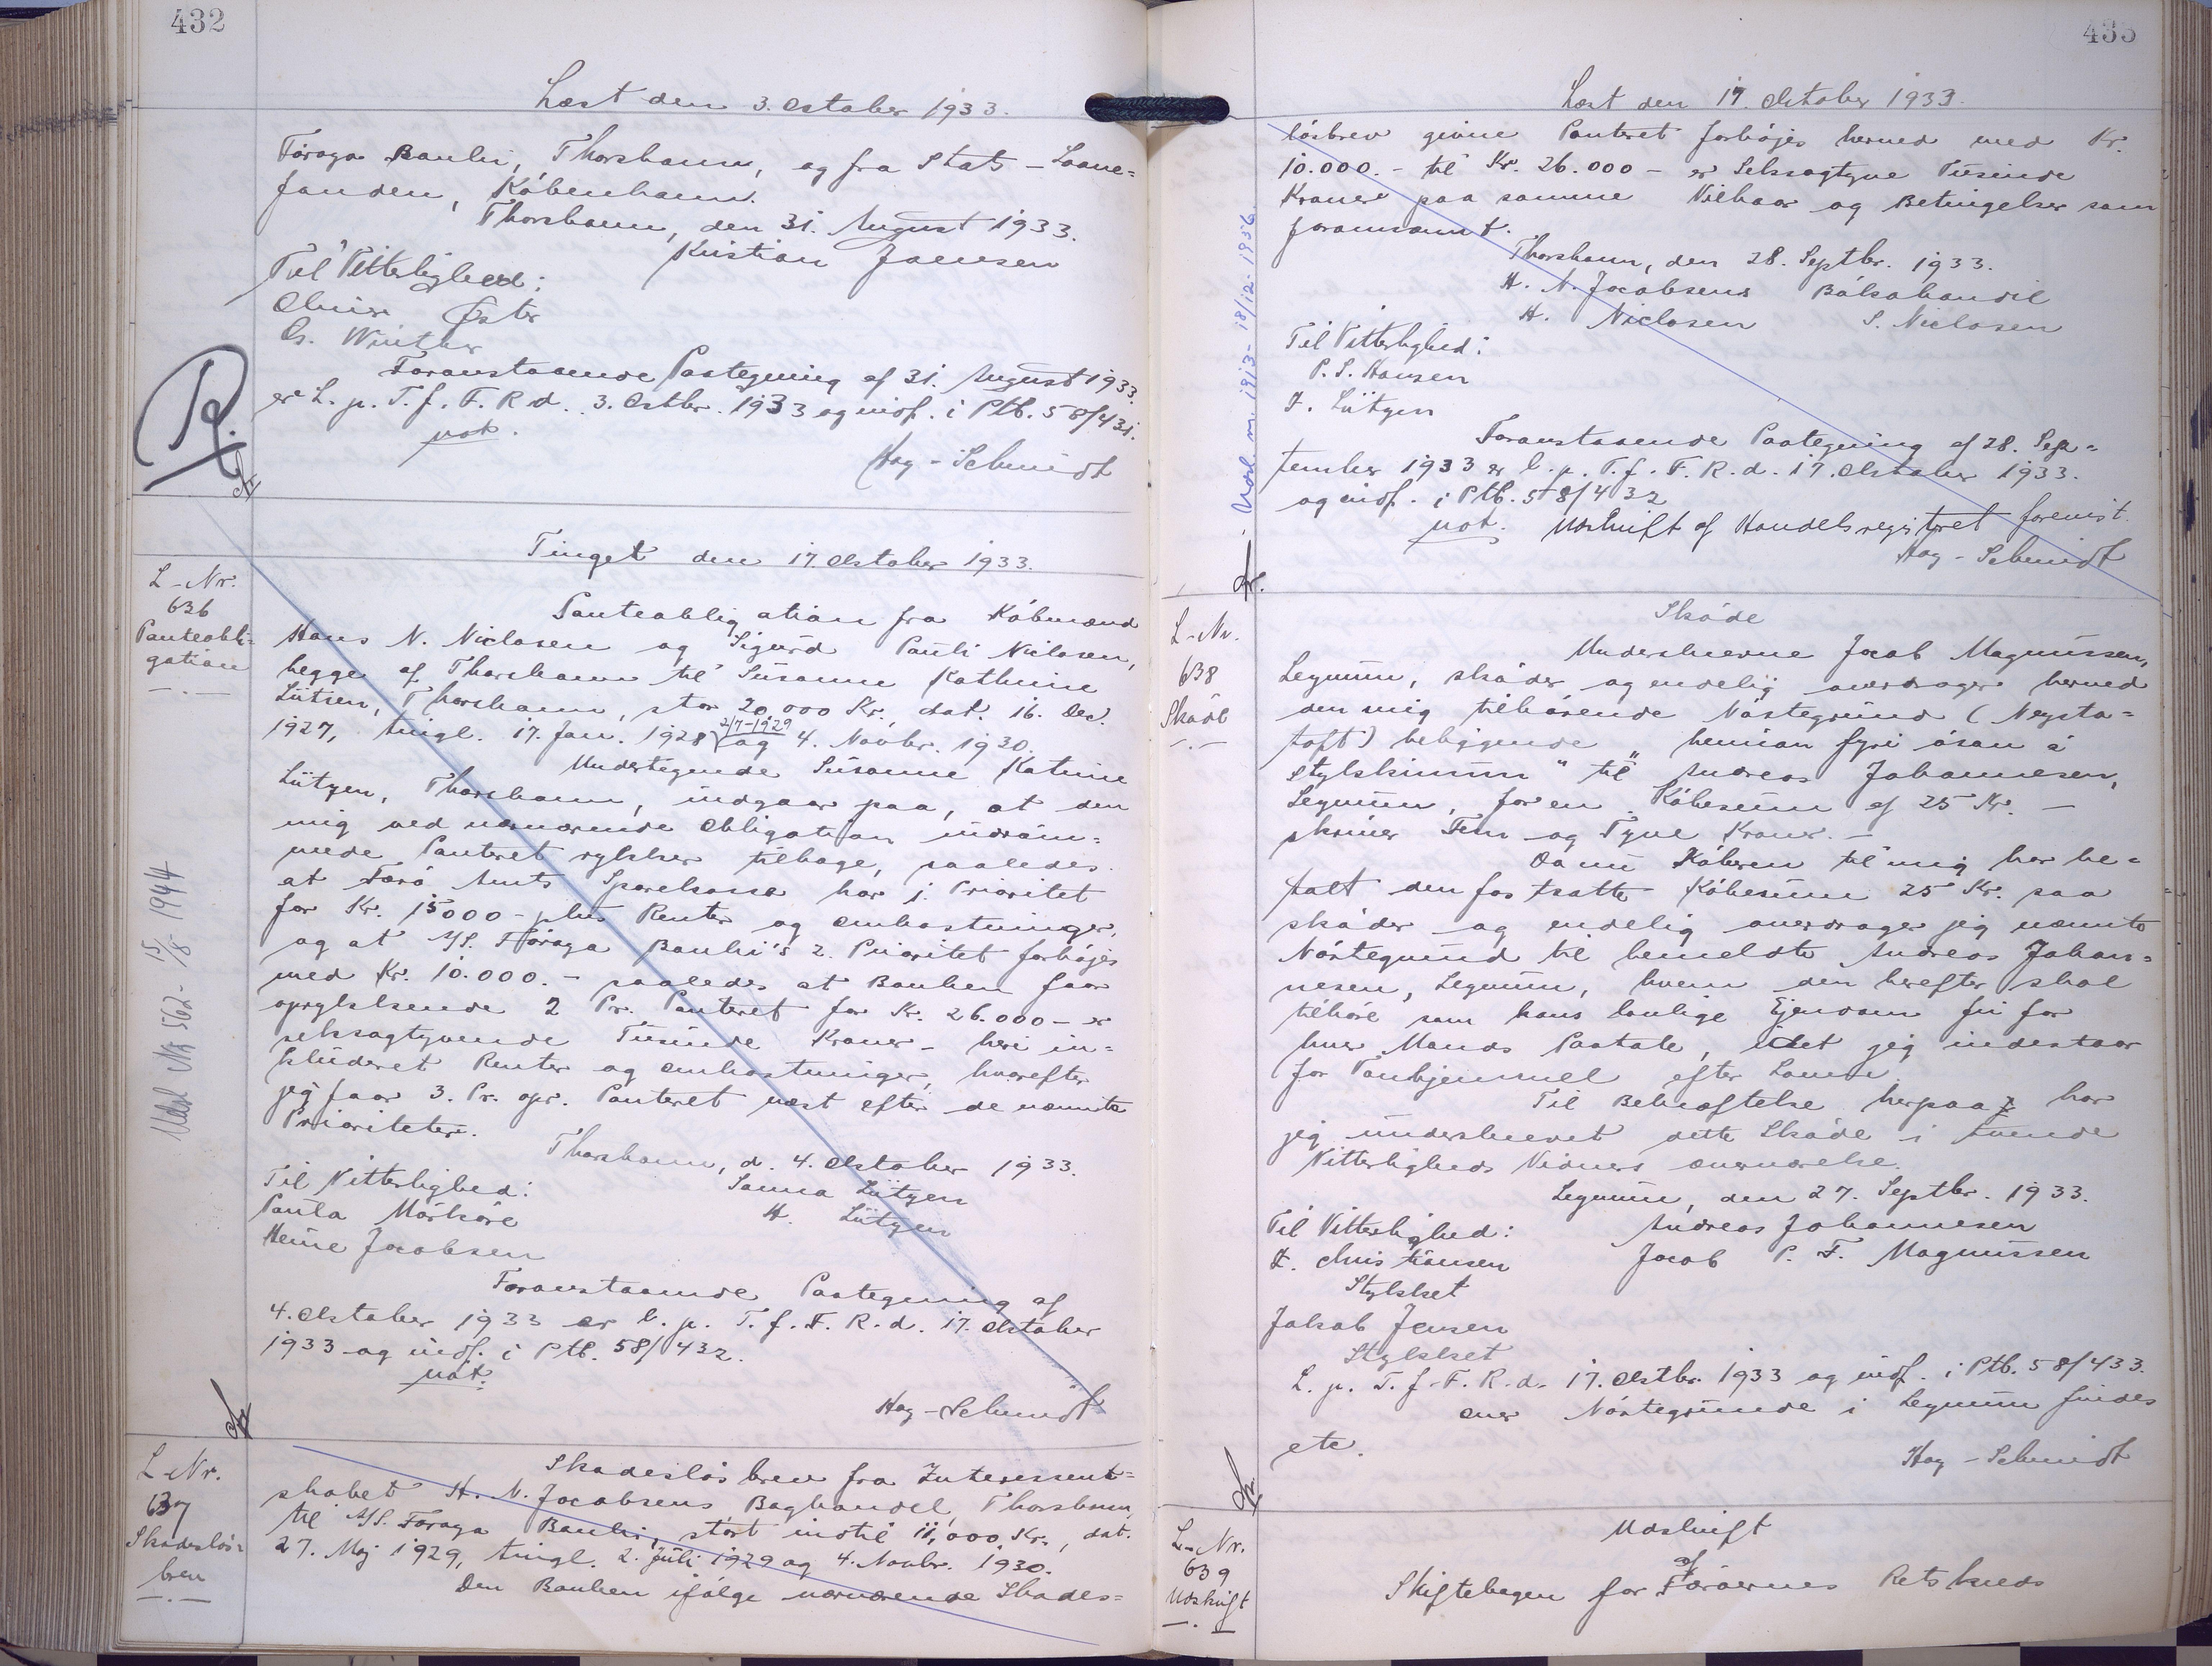 432
Læst den 3. Oktober 1933.
Føroya Banki, Thorshavn, og fra Stats-Laane=
fonden, København.
Thorshavn, den 31. August 1933.
Kristian Joensen
Til Vitterlighed:
Øster
Winther
Foranstaaende Paategning af 31. August 1933.
er L. p. T. f. F. R. d. 3. Octbr. 1933 og indf. i Ptb. 58/431.
not.
Hay-Schmidt
Tinget den 17. Oktober 1933.
L-Nr.
636
Panteobli=
gation
Panteobligation fra Købmænd
Hans N. Niclasen og Sigurd Pauli Niclasen,
begge af Thorshavn til Susanne Kathrine
Lützen, Thorshavn, stor 20,000 Kr., dat. 16. Dec.
1927, tingl. 17. Jan. 1928 2/7-1929 og 4. Novbr. 1930.
Undertegnede Susanne Katrine
Lützen, Thorshavn, indgaar paa, at den
mig ved nærværende Obligation indrøm=
mede Panteret rykker tilbage, saaledes
at Færø Amts Sparekasse har 1. Prioritet
for Kr. 15000 - plus Renter og Omkostninger,
og at A/S. Føroya Banki's 2. Prioritet forhøjes
med Kr. 10.000.- saaledes at Banken faar
oprykkende 2 Pr. Panteret for Kr. 26.000 - er
seksogtyvende Tusinde Kroner - heri in=
kluderet Renter og Omkostninger, hvorefter
jeg faar 3. Pr. opr. Panteret næst efter de nævnte
Prioriteter.
Thorshavn, d. 4. Oktober 1933.
Til Vitterlighed: Sanna Lützen
Paula Mørkøre H. Lützen
Heine Jacobsen
Foranstaaende Paategning af
4. Oktober 1933 er l. p. T. f. F. R. d. 17. Oktober
1933 og indf. i Ptb. 58/432.
not.
Hay-Schmidt
Udsl. Nr. 562- 15/8-1944
L-Nr.
637
Skadesløs=
brev
Skadesløsbrev fra Interessent=
skabet H. N. Jacobsens Boghandel, Thorshavn,
til A/S. Føroya Banki, stort indtil 11,000 Kr., dat.
27. Maj 1929, tingl. 2. Juli 1929 og 4. Novbr. 1930.
Den Banken ifølge nærværende Skades=
433
Læst den 17. Oktober 1933.
løsbrev givne Panteret forhøjes herved med Kr.
10.000.- til Kr. 26.000 - er Seksogtyve Tusinde
Kroner paa samme Vilkaar og Betingelser som
forannævnt.
Thorshavn, den 28. Septbr. 1933.
H. N. Jacobsens Bókahandil
H. Niclasen S. Niclasen
Til Vitterlighed:
P. S. Hansen
Lützen
Foranstaaende Paategning af 28. Sep=
tember 1933 er l. p. T. f. F. R. d. 17. Oktober 1933.
og indf. i Ptb. 58/432
not. Udskrift af Handelsregistret forevist.
Hay-Schmidt
Udsl. m 1913- 18/12-1956.
L-Nr.
638
Skøde
Skøde
Underskrevne Jacob Magnussen,
Legnum, skøder og endelig overdrager herved
den mig tilhørende Nøstegrund (Neysta=
toft) beliggende "heman fyri ósan á
Stylskinum" til Andreas Johannesen,
Legnum, for en Købesum af 25 Kr. -
skriver Fem og Tyve Kroner. -
Da nu Køberen til mig har be=
talt den fastsatte Købesum 25 Kr. saa
skøder og endelig overdrager jeg nævnte
Nøstegrund til bemeldte Andreas Johan=
nesen, Legnum, hvem den herefter skal
tilhøre som hans lovlige Ejendom fri for
hver Mands Paatale, idet jeg indestaar
for Vanhjemmel efter Loven.
Til Bekræftelse herpaa har
jeg underskrevet dette Skøde i tvende
Vitterligheds Vidners overværelse.
Legnum, den 27. Septbr. 1933.
Til Vitterlighed: Andreas Johannesen
Christiansen Jacob P. F. Magnussen
Stykket
Jakob Jensen
Stykket
L. p. T. f. F. R. d. 17. Oktbr. 1933 og indf. i Ptb. 58/433.
over Nøstegrunde i Legnum findes
etc.
Hay-Schmidt
L-Nr.
639
Udskrift
Udskrift
af
Skiftebogen for Færøernes Retskreds